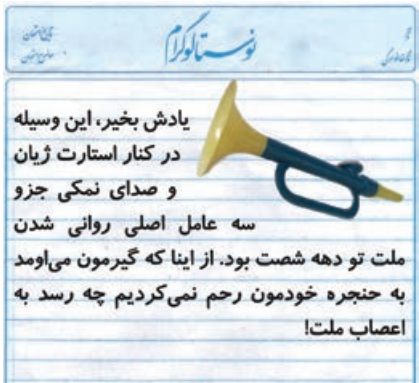 نوستالوگرام
یادش بخیر، این وسیله
در کنار استارت ژیان
و صدای نمکی جزو
سه عامل اصلی روانی شدن
ملت تو دهه شصت بود. از اینا که گیرمون می‌اومد
به حنجره خودمون رحم نمی‌کردیم چه رسد به
اعصاب ملت!